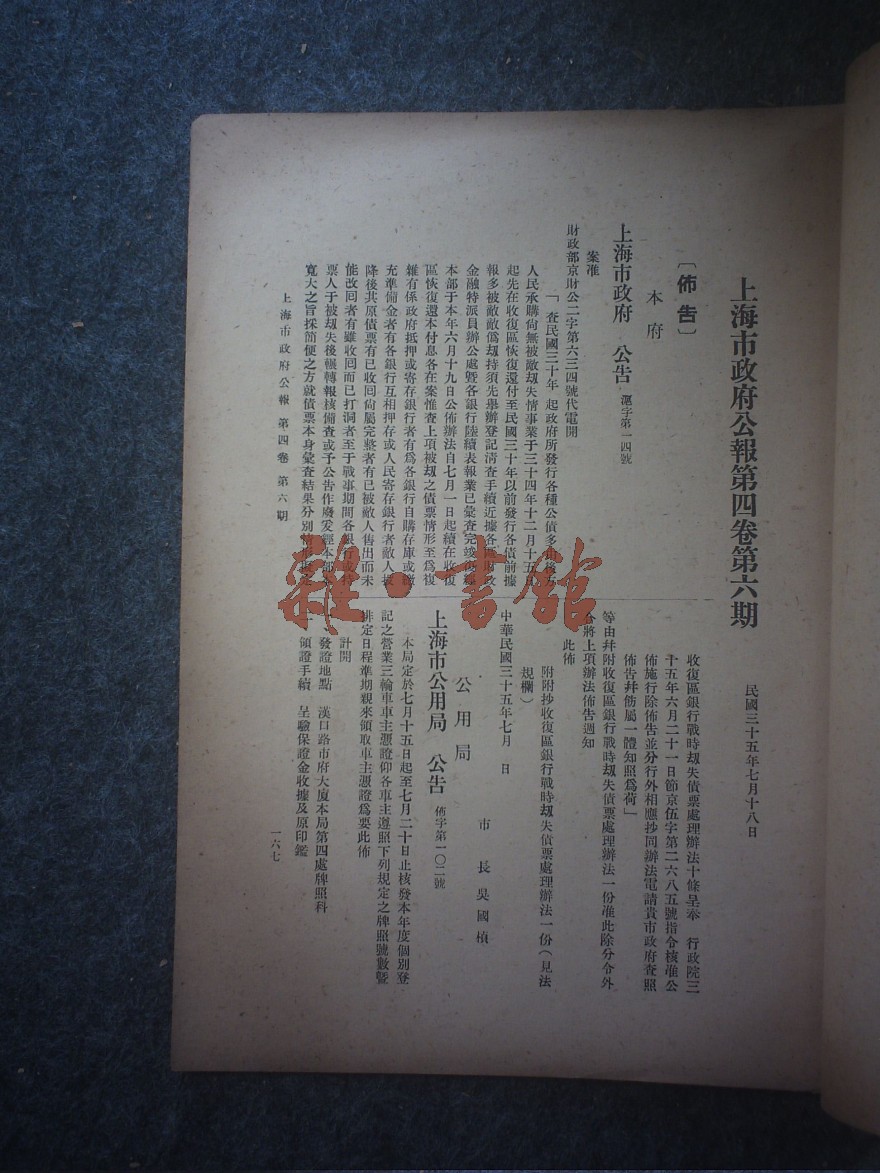 上海市政府公報第四卷第六期
民國三十五年七月十八日
〔佈告〕
本府
上海市政府 公告 滬字第一四號
案准
財政部京財公二字第六三四號代電開
「查民國三十年 起政府所發行各種公債多由後方
人民承購尚無被敵刼失情事業于三十四年十二月十五日
起先在收復區恢復還付至民國三十年以前發行各債前據
報多被敵敵僞刼持須先舉辦登記淸查手續近據各區財政
金融特派員辦公處曁各銀行陸續表報業已彙查完竣
本部于本年六月十九日公佈辦法自七月一日起續在收復
區恢復還本付息各在案惟查上項被刼之債票情形至爲複
雜有係政府抵押或寄存銀行者有爲各銀行自購存庫或
充準備金者有各銀行互相押存或人民寄存銀行者敵人投
降後其原債票有已收回尙屬完整者有已被敵人售出而未
能改囘者有雖收囘而已打洞者至于戰事期間各銀行或持
票人于被刼失後輾轉報核備查或予公告作廢爰經本部本
寬大之旨採簡便之方就債票本身彙查結果分別情形擬定
收復區銀行戰時刼失債票處理辦法十條呈奉 行政院三
十五年六月二十一日節京伍字第二六八五號指令核准公
佈施行除佈告並分行外相應抄同辦法電請貴市政府查照
佈告幷飭屬一體知照爲荷」
等由幷附收復區銀行戰時刼失債票處理辦法一份准此除分令外
合將上項辦法佈告週知
此佈
附附抄收復區銀行戰時刼失債票處理辦法一份（見法
規欄）
中華民國三十五年七月 日
市 長 吳國楨
公用局
上海市公用局 公告 佈字第一〇二號
本局定於七月十五日起至七月二十日止核發本年度個別登
記之營業三輪車車主憑證仰各車主遵照下列規定之牌照號數曁
排定日程準期親來領取車主憑證爲要此佈
計開
一、發證地點 漢口路市府大廈本局第四處牌照科
一、領證手續 呈驗保證金收據及原印鑑
上海市政府公報 第四卷 第六期
一六七
雜·書館